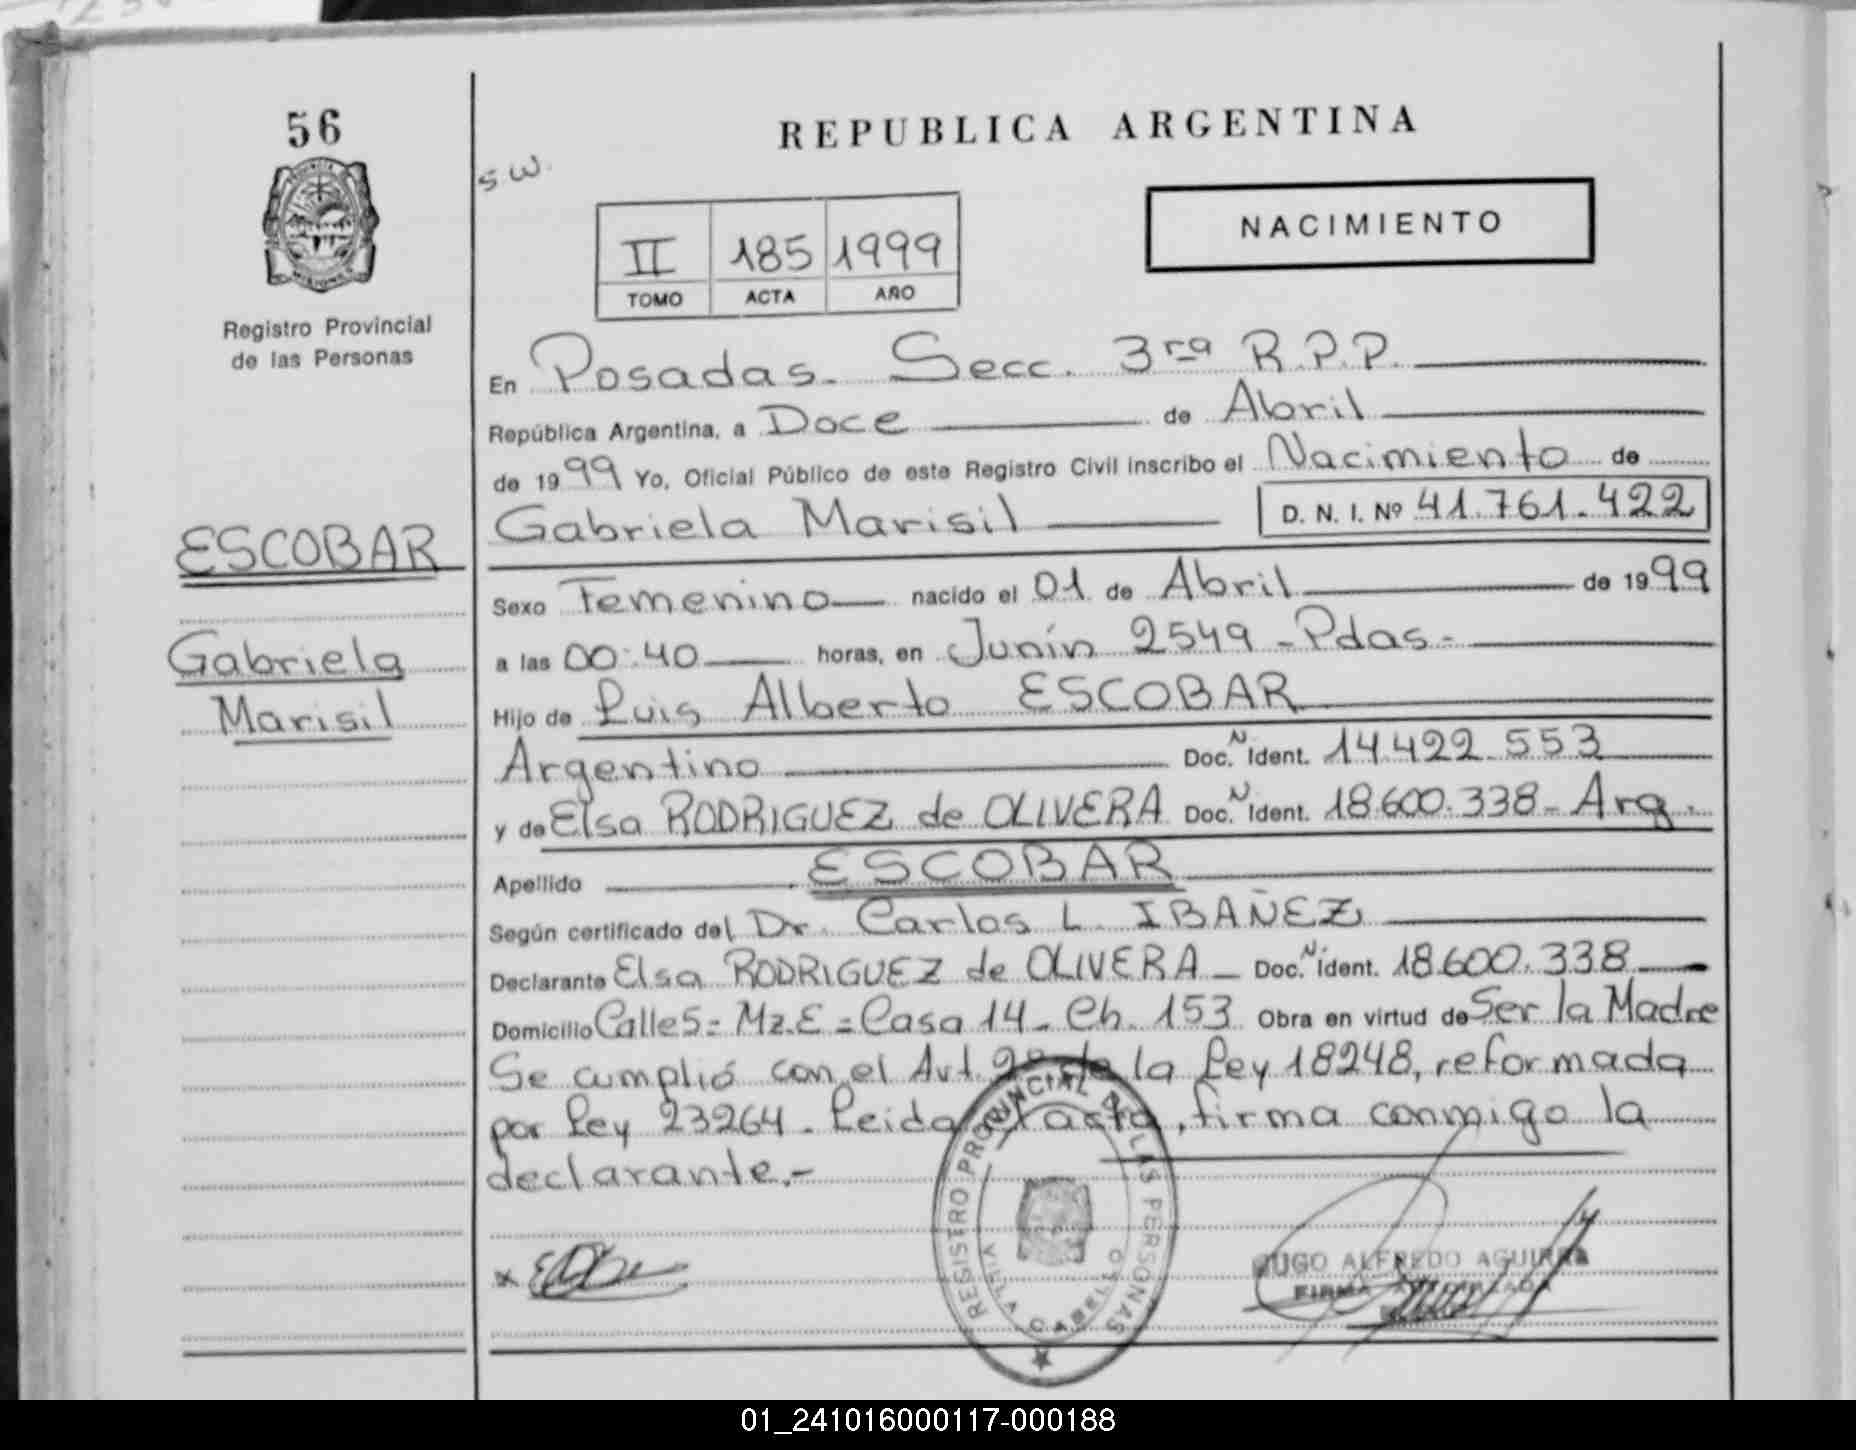 56
Registro Provincial
de las Personas
ESCOBAR
Gabriela
Marisil
REPUBLICA ARGENTINA
S.W.
NACIMIENTO
II 185 1999
TOMO ACTA AÑO
En Posadas. Secc. 3ra R.P.P.
República Argentina, a Doce de Abril
de 1999 Yo, Oficial Público de este Registro Civil inscribo el Nacimiento de
Gabriela Marisil D. N. I. Nº 41.761.422
Sexo Femenino nacido el 01 de Abril de 1999
a las 00:40 horas, en Junín 2549 - Pdas.-
Hijo de Luis Alberto ESCOBAR
Argentino Doc. N Ident. 14.422.553
y de Elsa RODRIGUEZ de OLIVERA Doc. N Ident. 18.600.338 - Arg.
Apellido ESCOBAR
Según certificado del Dr. Carlos L. IBAÑEZ
Declarante Elsa RODRIGUEZ de OLIVERA - Doc. N ident. 18.600.338
Domicilio Calle 5 = Mz.E = Casa 14 - Ch. 153 Obra en virtud de Ser la Madre
Se cumplió con el Art. 2º de la Ley 18248, reformada
por Ley 23264. Leida el acta, firma conmigo la
declarante.-
REGISTRO PROVINCIAL DE LAS PERSONAS
VILLA CABELLO
HUGO ALFREDO AGUIRRE
FIRMA AUTORIZADA
01_241016000117-000188